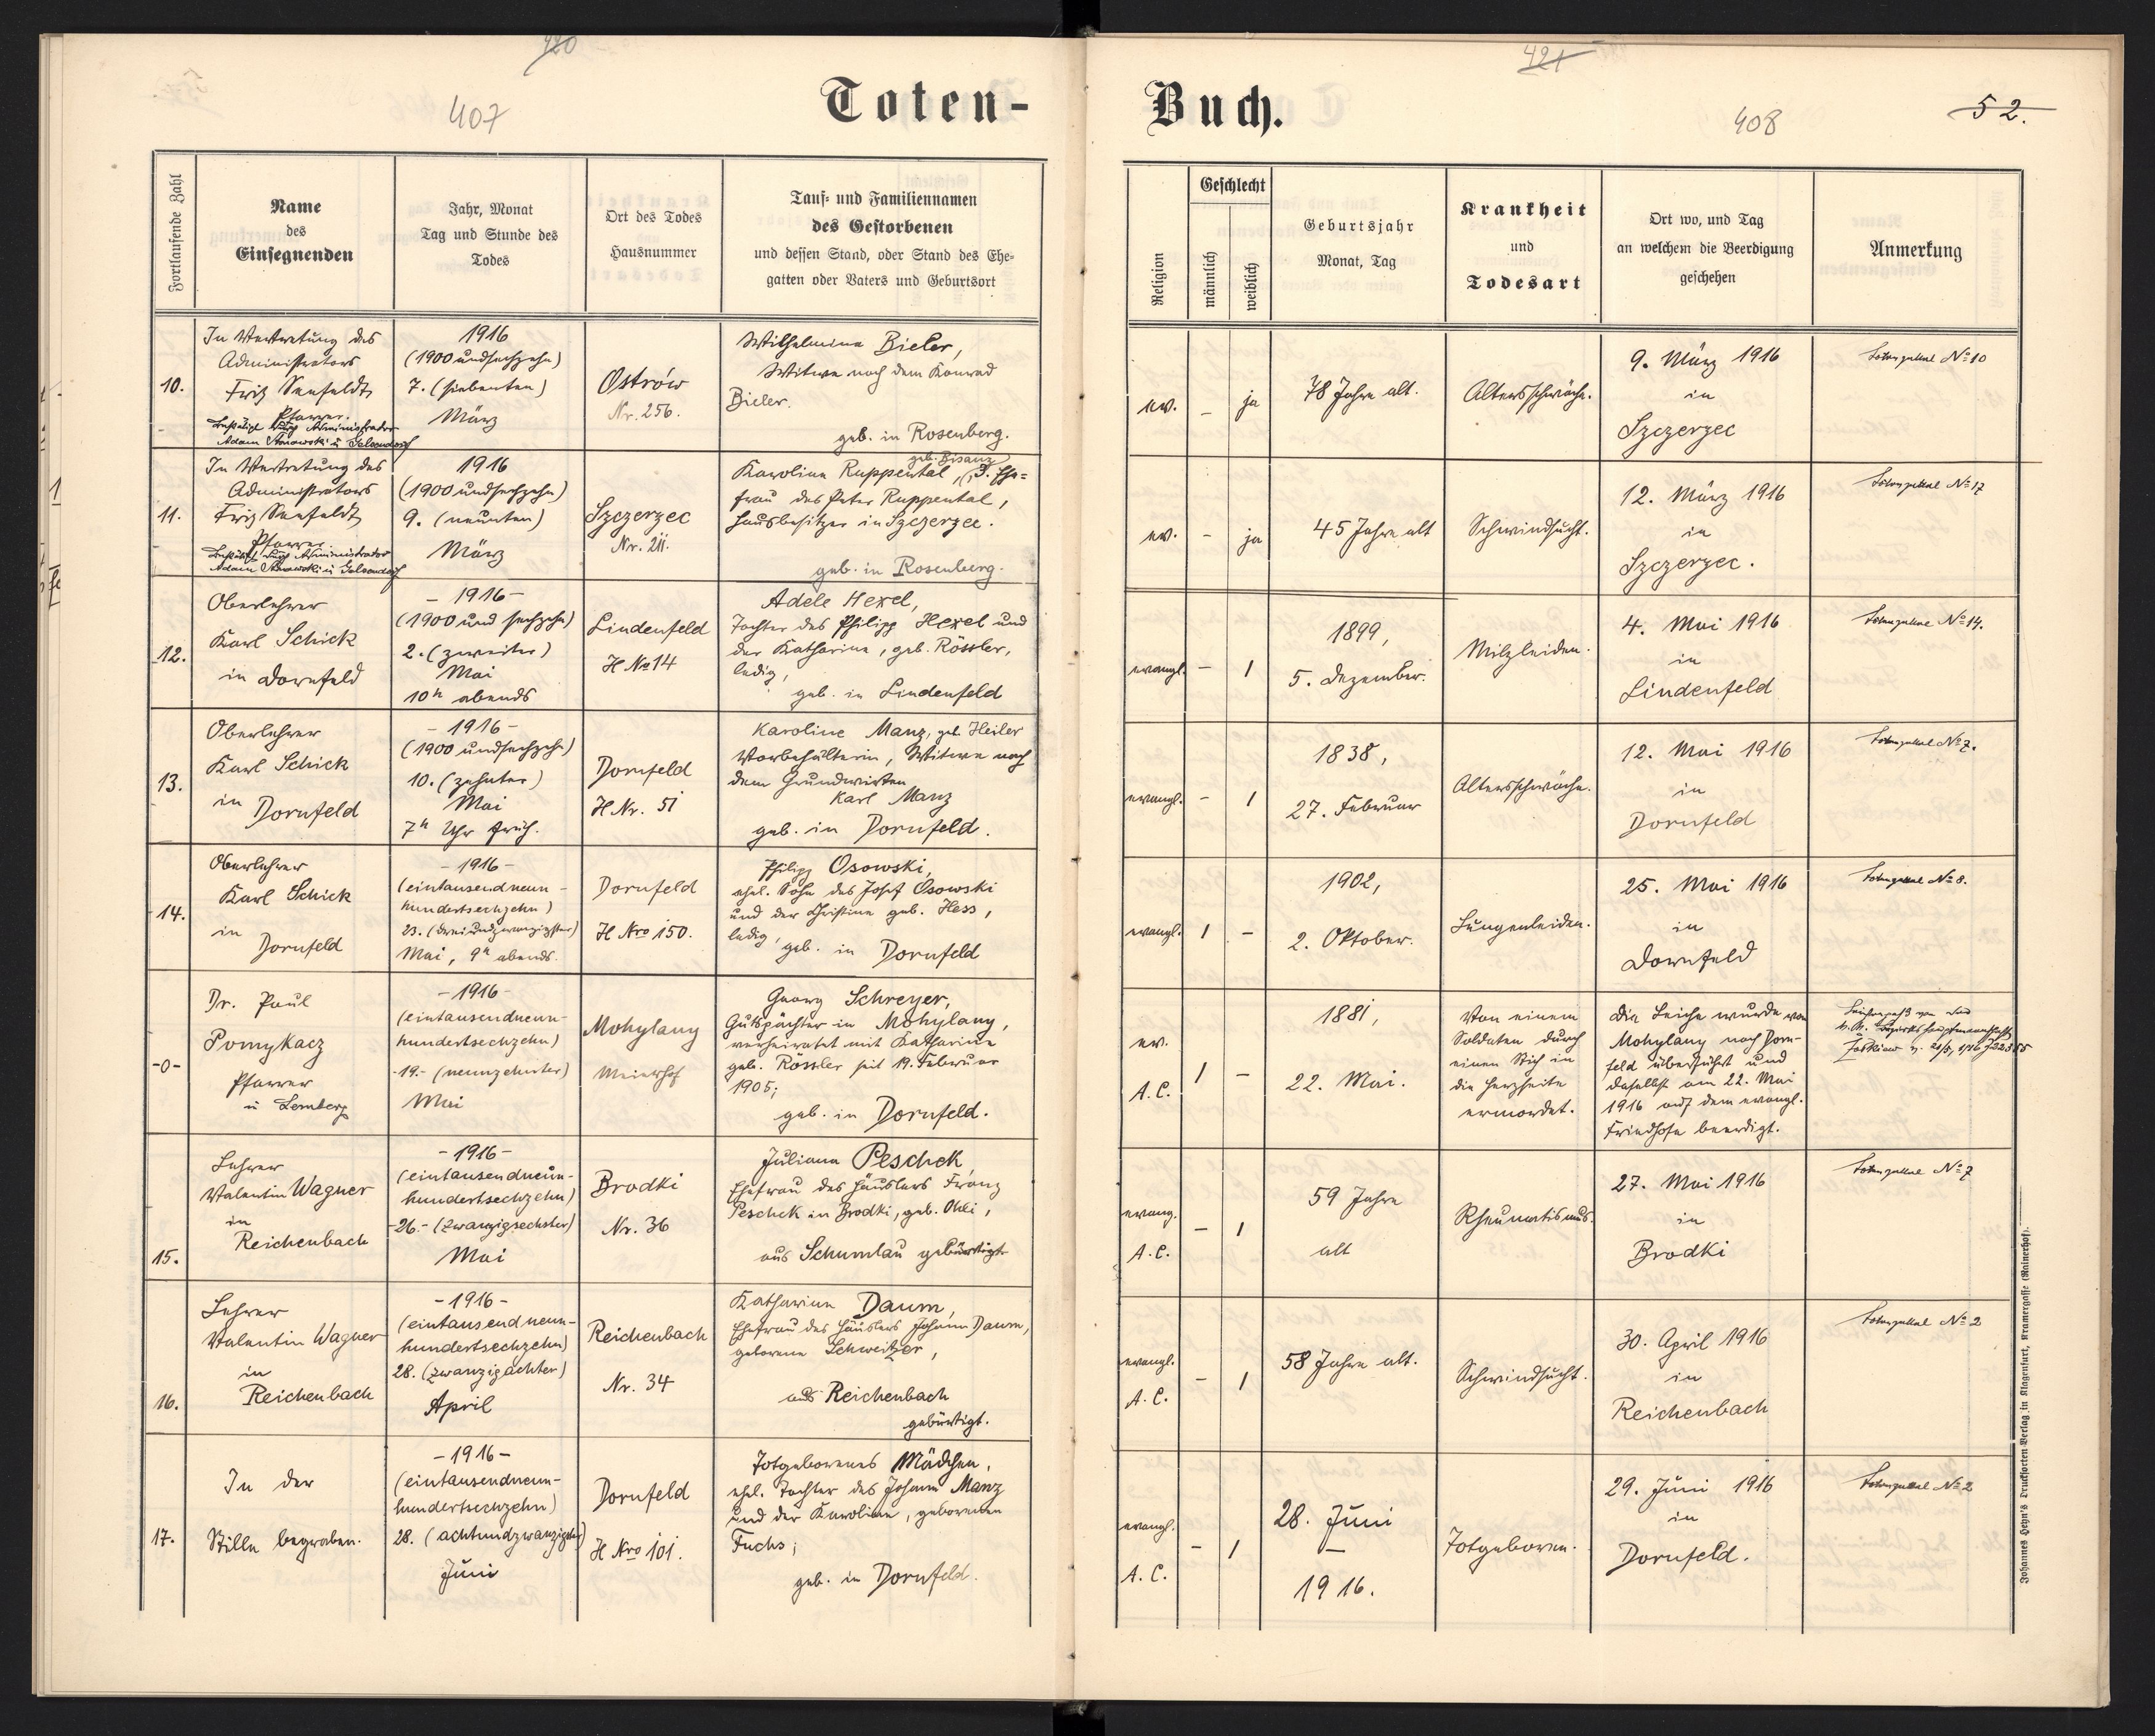 420
407
Toten-
Fortlaufende Zahl
Name
des
Einsegnenden
Jahr, Monat
Tag und Stunde des
Todes
Ort des Todes
Hausnummer
Tauf- und Familiennamen
des Gestorbenen
und dessen Stand, oder Stand des Ehe-
gatten oder Vaters und Geburtsort
10.
In Vertretung des
Administrators
Friz Seefeldt,
Pfarrer.
Bestätigt durch Administrator
Adam in Gelsendorf
1916
(1900 undsechzehn)
7. (siebenten)
März
Ostrów
Nr. 256.
Wilhelmine Bieler,
Witwe nach dem Konrad
Bieler.
geb. in Rosenberg.
11.
In Vertretung des
Administrators
Friz Seefeldt,
Pfarrer.
Bestätigt durch Administrator
Adam in Gelsendorf
1916
(1900 undsechzehn)
9. (neunten)
März
Szczerzec
Nr. 211.
geb. Bisanz
Karoline Ruppental, 3. Ehe-
frau des Peter Ruppental,
Hausbesitzer in Szczerzec.
geb. in Rosenberg.
12.
Oberlehrer
Karl Schick
in Dornfeld
- 1916 -
(1900 und sechzehn)
2. (zweiter)
Mai
10h abends
Lindenfeld
H No 14
Adele Hexel,
Tochter des Philipp Hexel und
der Katharine, geb. Rössler,
ledig,
geb. in Lindenfeld
13.
Oberlehrer
Karl Schick
in
Dornfeld
- 1916 -
(1900 undsechzehn)
10. (zehnter)
Mai
7h Uhr früh.
Dornfeld
H Nr. 51
Karoline Manz, geb. Heiler
Vorbehälterin, Witwe nach
dem Grundwirten
Karl Manz
geb. in Dornfeld.
14.
Oberlehrer
Karl Schick
in
Dornfeld
- 1916 -
(eintausendneun-
hundertsechzehn)
23. (dreiundzwanzigster)
Mai, 9h abends.
Dornfeld
H Nro 150.
Philipp Osowski,
ehel. Sohn des Josef Osowski
und der Christine geb. Hess,
ledig, geb. in Dornfeld
-0-
Dr. Paul
Pomykacz
Pfarrer
in Lemberg
- 1916 -
(eintausendneun-
hundertsechzehn)
-19.- (neunzehnter)
Mai
Mohylany
Meierhof
Georg Schreyer,
Gutspächter in Mohylany,
verheiratet mit Katharine
geb. Rössler seit 19. Februar
1905;
geb. in Dornfeld.
15.
Lehrer
Valentin Wagner
in
Reichenbach
- 1916 -
(eintausendneun-
hundertsechzehn)
-26.- (zwanzigsechster)
Mai
Brodki
Nr. 36
Juliana Peschek,
Ehefrau des Häuslers Franz
Peschek in Brodki, geb. Ohli,
aus Schumlau gebürtigt
16.
Lehrer
Valentin Wagner
in
Reichenbach
- 1916 -
(eintausendneun-
hundertsechzehn)
28. (zwanzigachter)
April
Reichenbach
Nr. 34
Katharine Daum,
Ehefrau des Häuslers Johann Daum,
geborene Schweitzer,
aus Reichenbach
gebürtigt.
17.
In der
Stille begraben.
- 1916 -
(eintausendneun-
hundertsechzehn)
28. (achtundzwanzigster)
Juni
Dornfeld
H Nro 101.
Totgeborenes Mädchen,
ehel. Tochter des Johann Manz
und der Karoline, geborenen
Fuchs;
geb. in Dornfeld.
421
Buch.
408
52.
Religion
Geschlecht
männlich
weiblich
Geburtsjahr
Monat, Tag
Krankheit
und
Todesart
Ort wo, und Tag
an welchem die Beerdigung
geschehen
Anmerkung
ev.
-
ja
78 Jahre alt.
Altersschwäche.
9. März 1916
in
Szczerzec
Totenzettel No 10
ev.
-
ja
45 Jahre alt
Schwindsucht.
12. März 1916
in
Szczerzec.
Totenzettel No 17
evangl.
-
1
1899,
5. Dezember.
Milzleiden.
4. Mai 1916
in
Lindenfeld
Totenzettel No 14.
evangl.
-
1
1838,
27. Februar
Altersschwäche.
12. Mai 1916
in
Dornfeld
Totenzettel No 7.
evangl.
1
-
1902,
2. Oktober.
Lungenleiden.
25. Mai 1916
in
Dornfeld
Totenzettel No 8.
ev.
A.C.
1
-
1881,
22. Mai.
Von einem
Soldaten durch
einen Stich in
die Herzseite
ermordet.
Die Leiche wurde von
Mohylany nach Dorn-
feld überführt und
daselbst am 22. Mai
1916 auf dem evangl.
Friedhofe beerdigt.
Leichenpaß von der
k.k. Bezirkshauptmannschaft
evang.
A.C.
-
1
59 Jahre
alt
Rheumatismus.
27. Mai 1916
in
Brodki
Totenzettel No 7
evangl.
A.C.
-
1
58 Jahre alt.
Schwindsucht.
30. April 1916
in
Reichenbach
Totenzettel No 2
evangl.
A.C.
-
1
28. Juni
1916.
Totgeboren.
29. Juni 1916
in
Dornfeld.
Totenzettel No 2
Johannes Heyn's Drucksorten-Verlag in Klagenfurt, Kramergasse (Rainerhof).